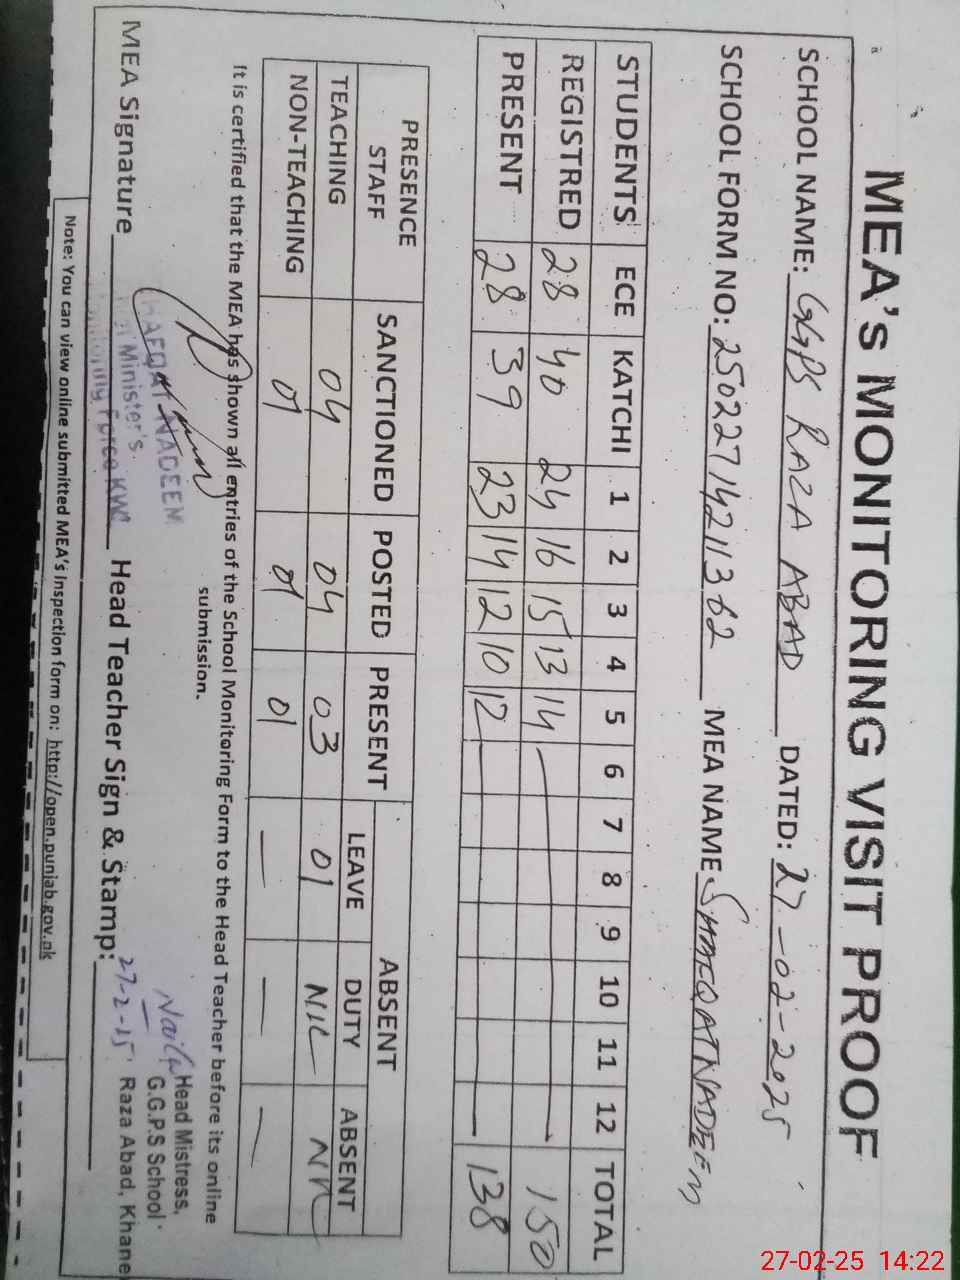 MEA'S MONITORING VISIT PROOF
SCHOOL NAME: GGPS RAZA ABAD DATED: 27-02-2025
SCHOOL FORM NO: 25022714211362 MEA NAME SHAFQAT NADEEM
STUDENTS ECE KATCHI 1 2 3 4 5 6 7 8 9 10 11 12 TOTAL
REGISTRED 28 40 24 16 15 13 14 150
PRESENT 28 39 23 14 12 10 12 138
PRESENCE STAFF SANCTIONED POSTED PRESENT ABSENT
LEAVE DUTY ABSENT
TEACHING 04 04 03 01 NIL NIL
NON-TEACHING 01 01 01 — — —
It is certified that the MEA has shown all entries of the School Monitoring Form to the Head Teacher before its online
submission.
MEA Signature Head Teacher Sign & Stamp:
HAFQAT NADEEM
Minister's
Force KW
Naila
27-2-15
Head Mistress,
G.G.P.S School
Raza Abad, Khane
Note: You can view online submitted MEA's Inspection form on: http://open.punjab.gov.pk
27-02-25 14:22